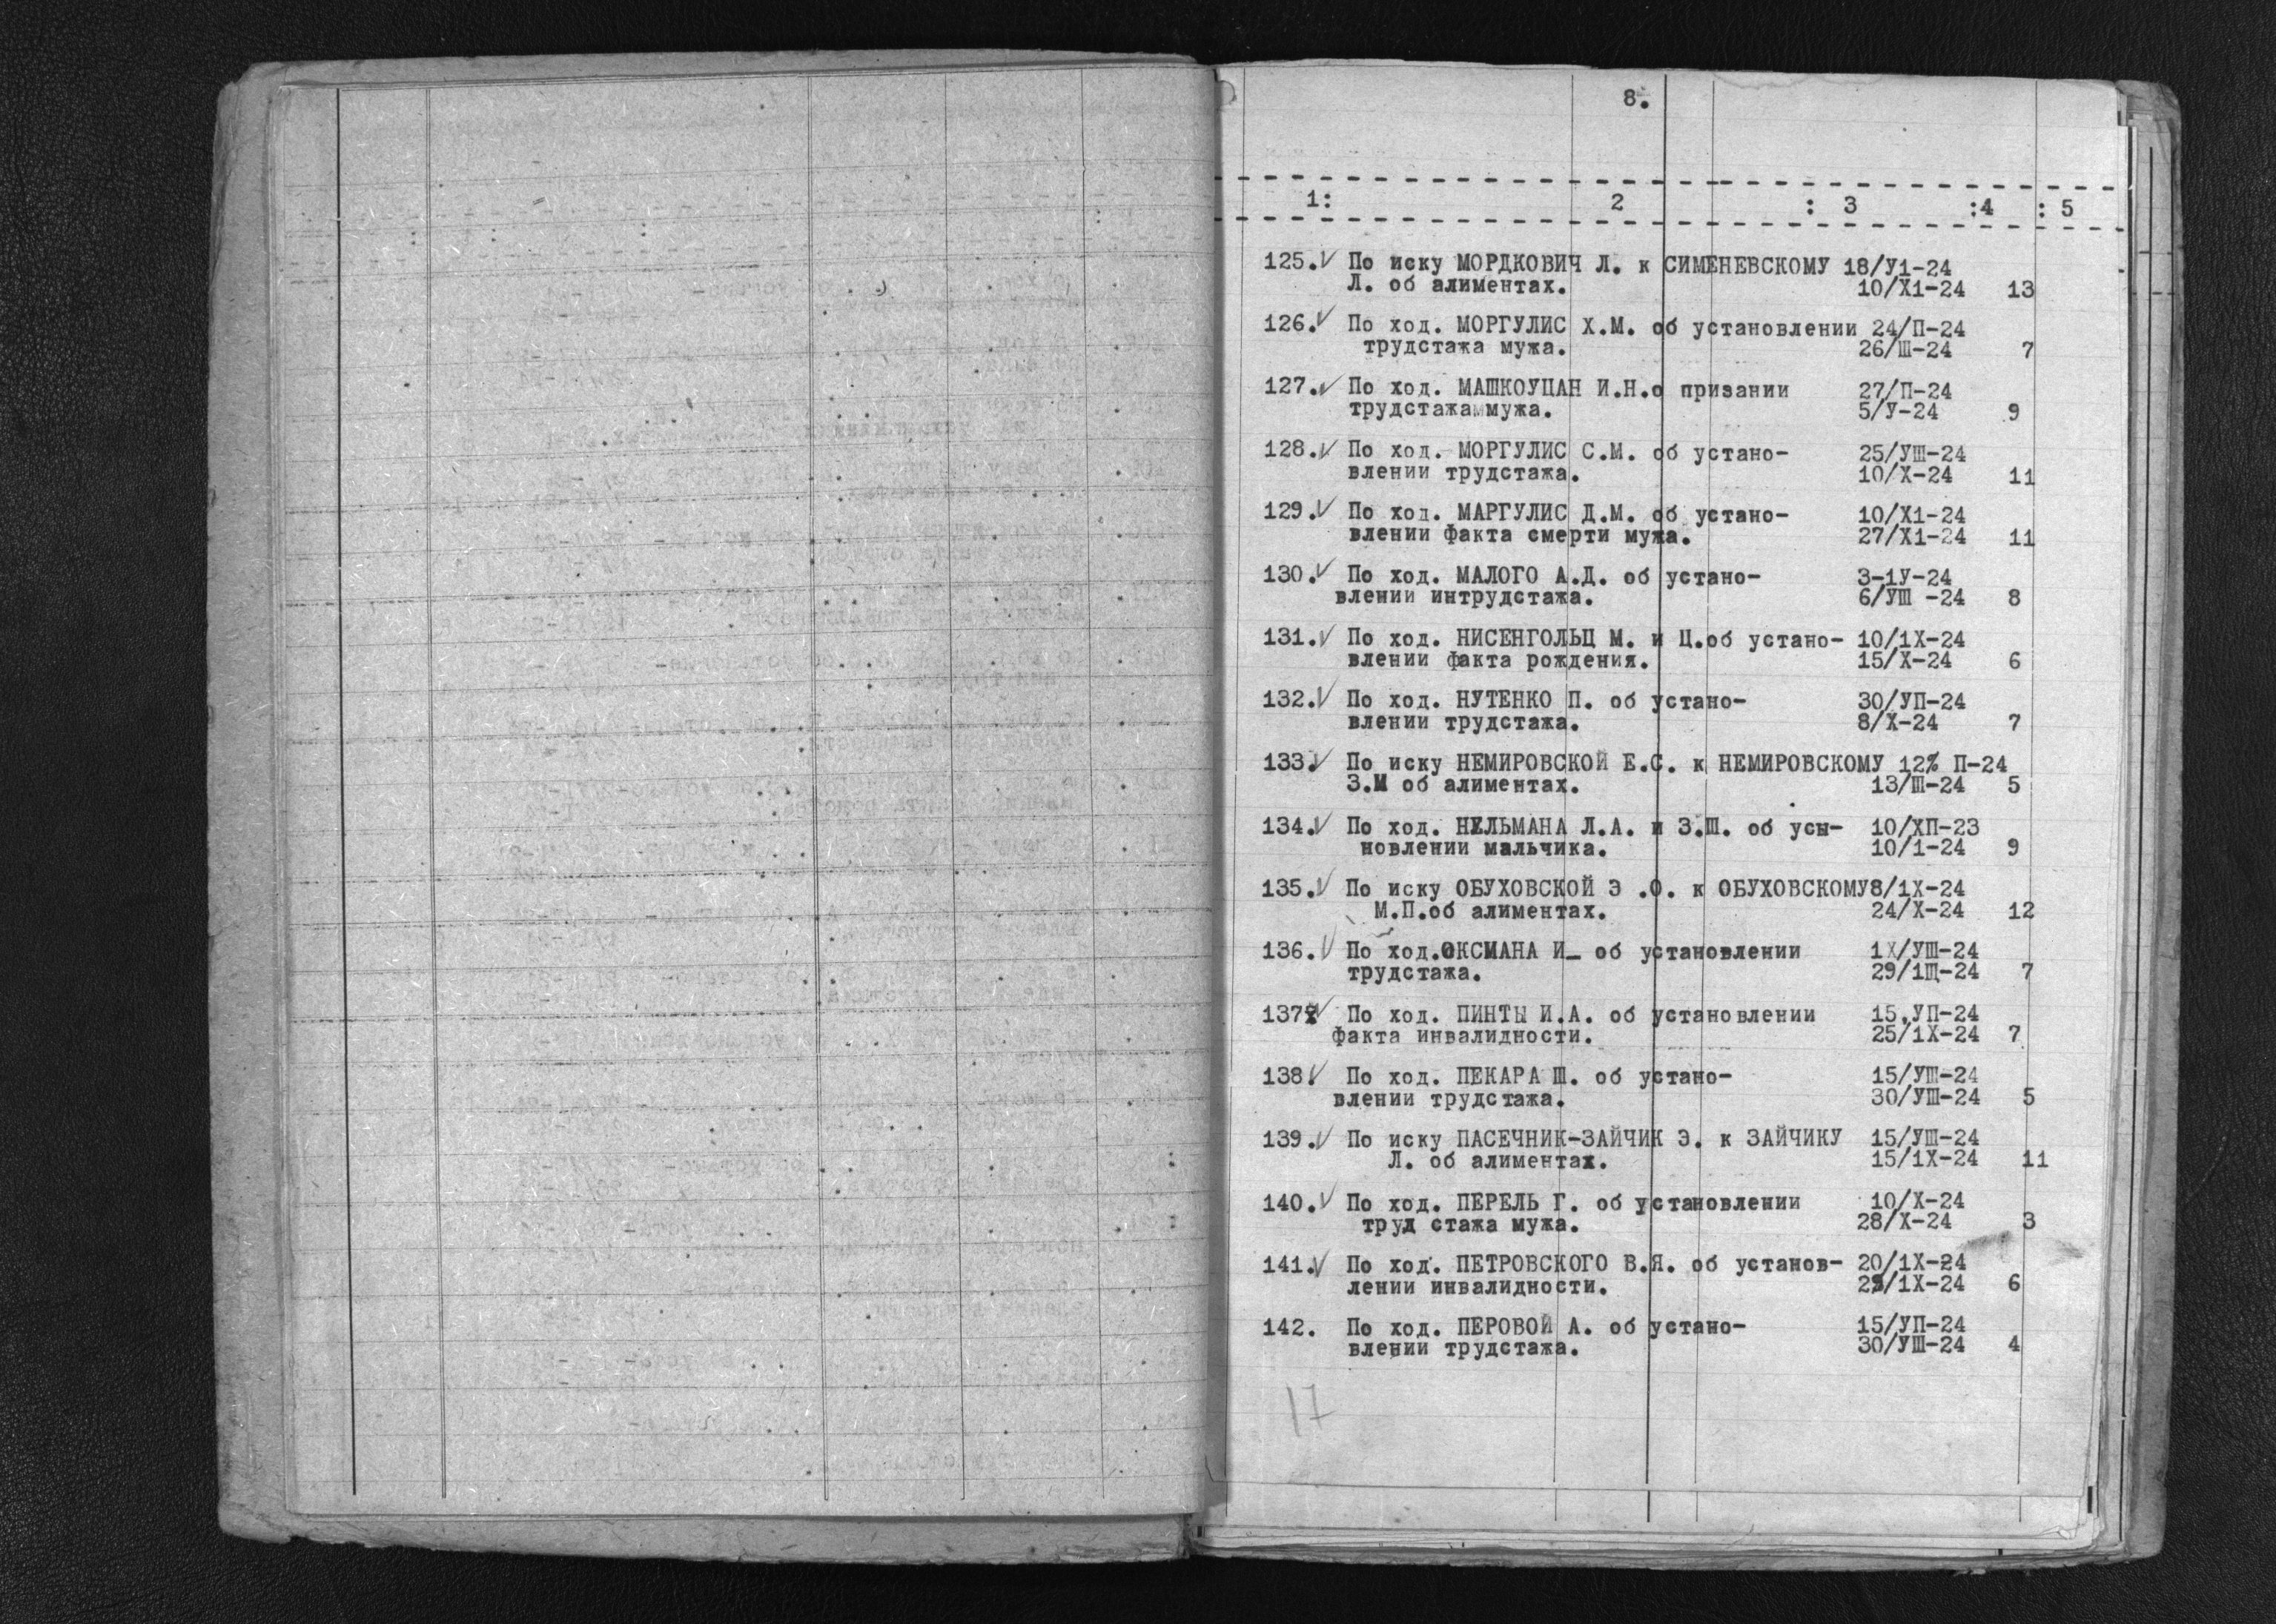 8.
1: 2 : 3 :4 : 5
125. По иску МОРДКОВИЧ Л. к СИМЕНЕВСКОМУ 18/У1-24
Л. об алиментах. 10/Х1-24 13
126. По ход. МОРГУЛИС Х.М. об установлении 24/П-24
трудстажа мужа. 26/Ш-24 7
127. По ход. МАШКОУЦАН И.Н.о призании 27/П-24
трудстажа мужа. 5/У-24 9
128. По ход. МОРГУЛИС С.М. об устано- 25/УШ-24
влении трудстажа. 10/Х-24 11
129. По ход. МАРГУЛИС Д.М. об устано- 10/Х1-24
влении факта смерти мужа. 27/Х1-24 11
130. По ход. МАЛОГО А.Д. об устано- 3-1У-24
влении интрудстажа. 6/УШ -24 8
131. По ход. НИСЕНГОЛЬЦ М. и Ц.об устано- 10/1Х-24
влении факта рождения. 15/Х-24 6
132. По ход. НУТЕНКО П. об устано- 30/УП-24
влении трудстажа. 8/Х-24 7
133. По иску НЕМИРОВСКОЙ Е.С. к НЕМИРОВСКОМУ 12% П-24
З.М об алиментах. 13/Ш-24 5
134. По ход. НЕЛЬМАНА Л.А. и З.Ш. об усы- 10/ХП-23
новлении мальчика. 10/1-24 9
135. По иску ОБУХОВСКОЙ Э .О. к ОБУХОВСКОМУ8/1Х-24
М.П.об алиментах. 24/Х-24 12
136. По ход.ОКСМАНА И_ об установлении 1Х/УШ-24
трудстажа. 29/1Щ-24 7
137 По ход. ПИНТЫ И.А. об установлении 15.УП-24
факта инвалидности. 25/1Х-24 7
138. По ход. ПЕКАРА Ш. об устано- 15/УШ-24
влении трудстажа. 30/УШ-24 5
139. По иску ПАСЕЧНИК-ЗАЙЧИК Э. к ЗАЙЧИКУ 15/УШ-24
Л. об алиментах. 15/1Х-24 11
140. По ход. ПЕРЕЛЬ Г. об установлении 10/Х-24
труд стажа мужа. 28/Х-24 3
141. По ход. ПЕТРОВСКОГО В.Я. об установ- 20/1Х-24
лении инвалидности. 6
142. По ход. ПЕРОВОЙ А. об устано- 15/УП-24
влении трудстажа. 30/УШ-24 4
17